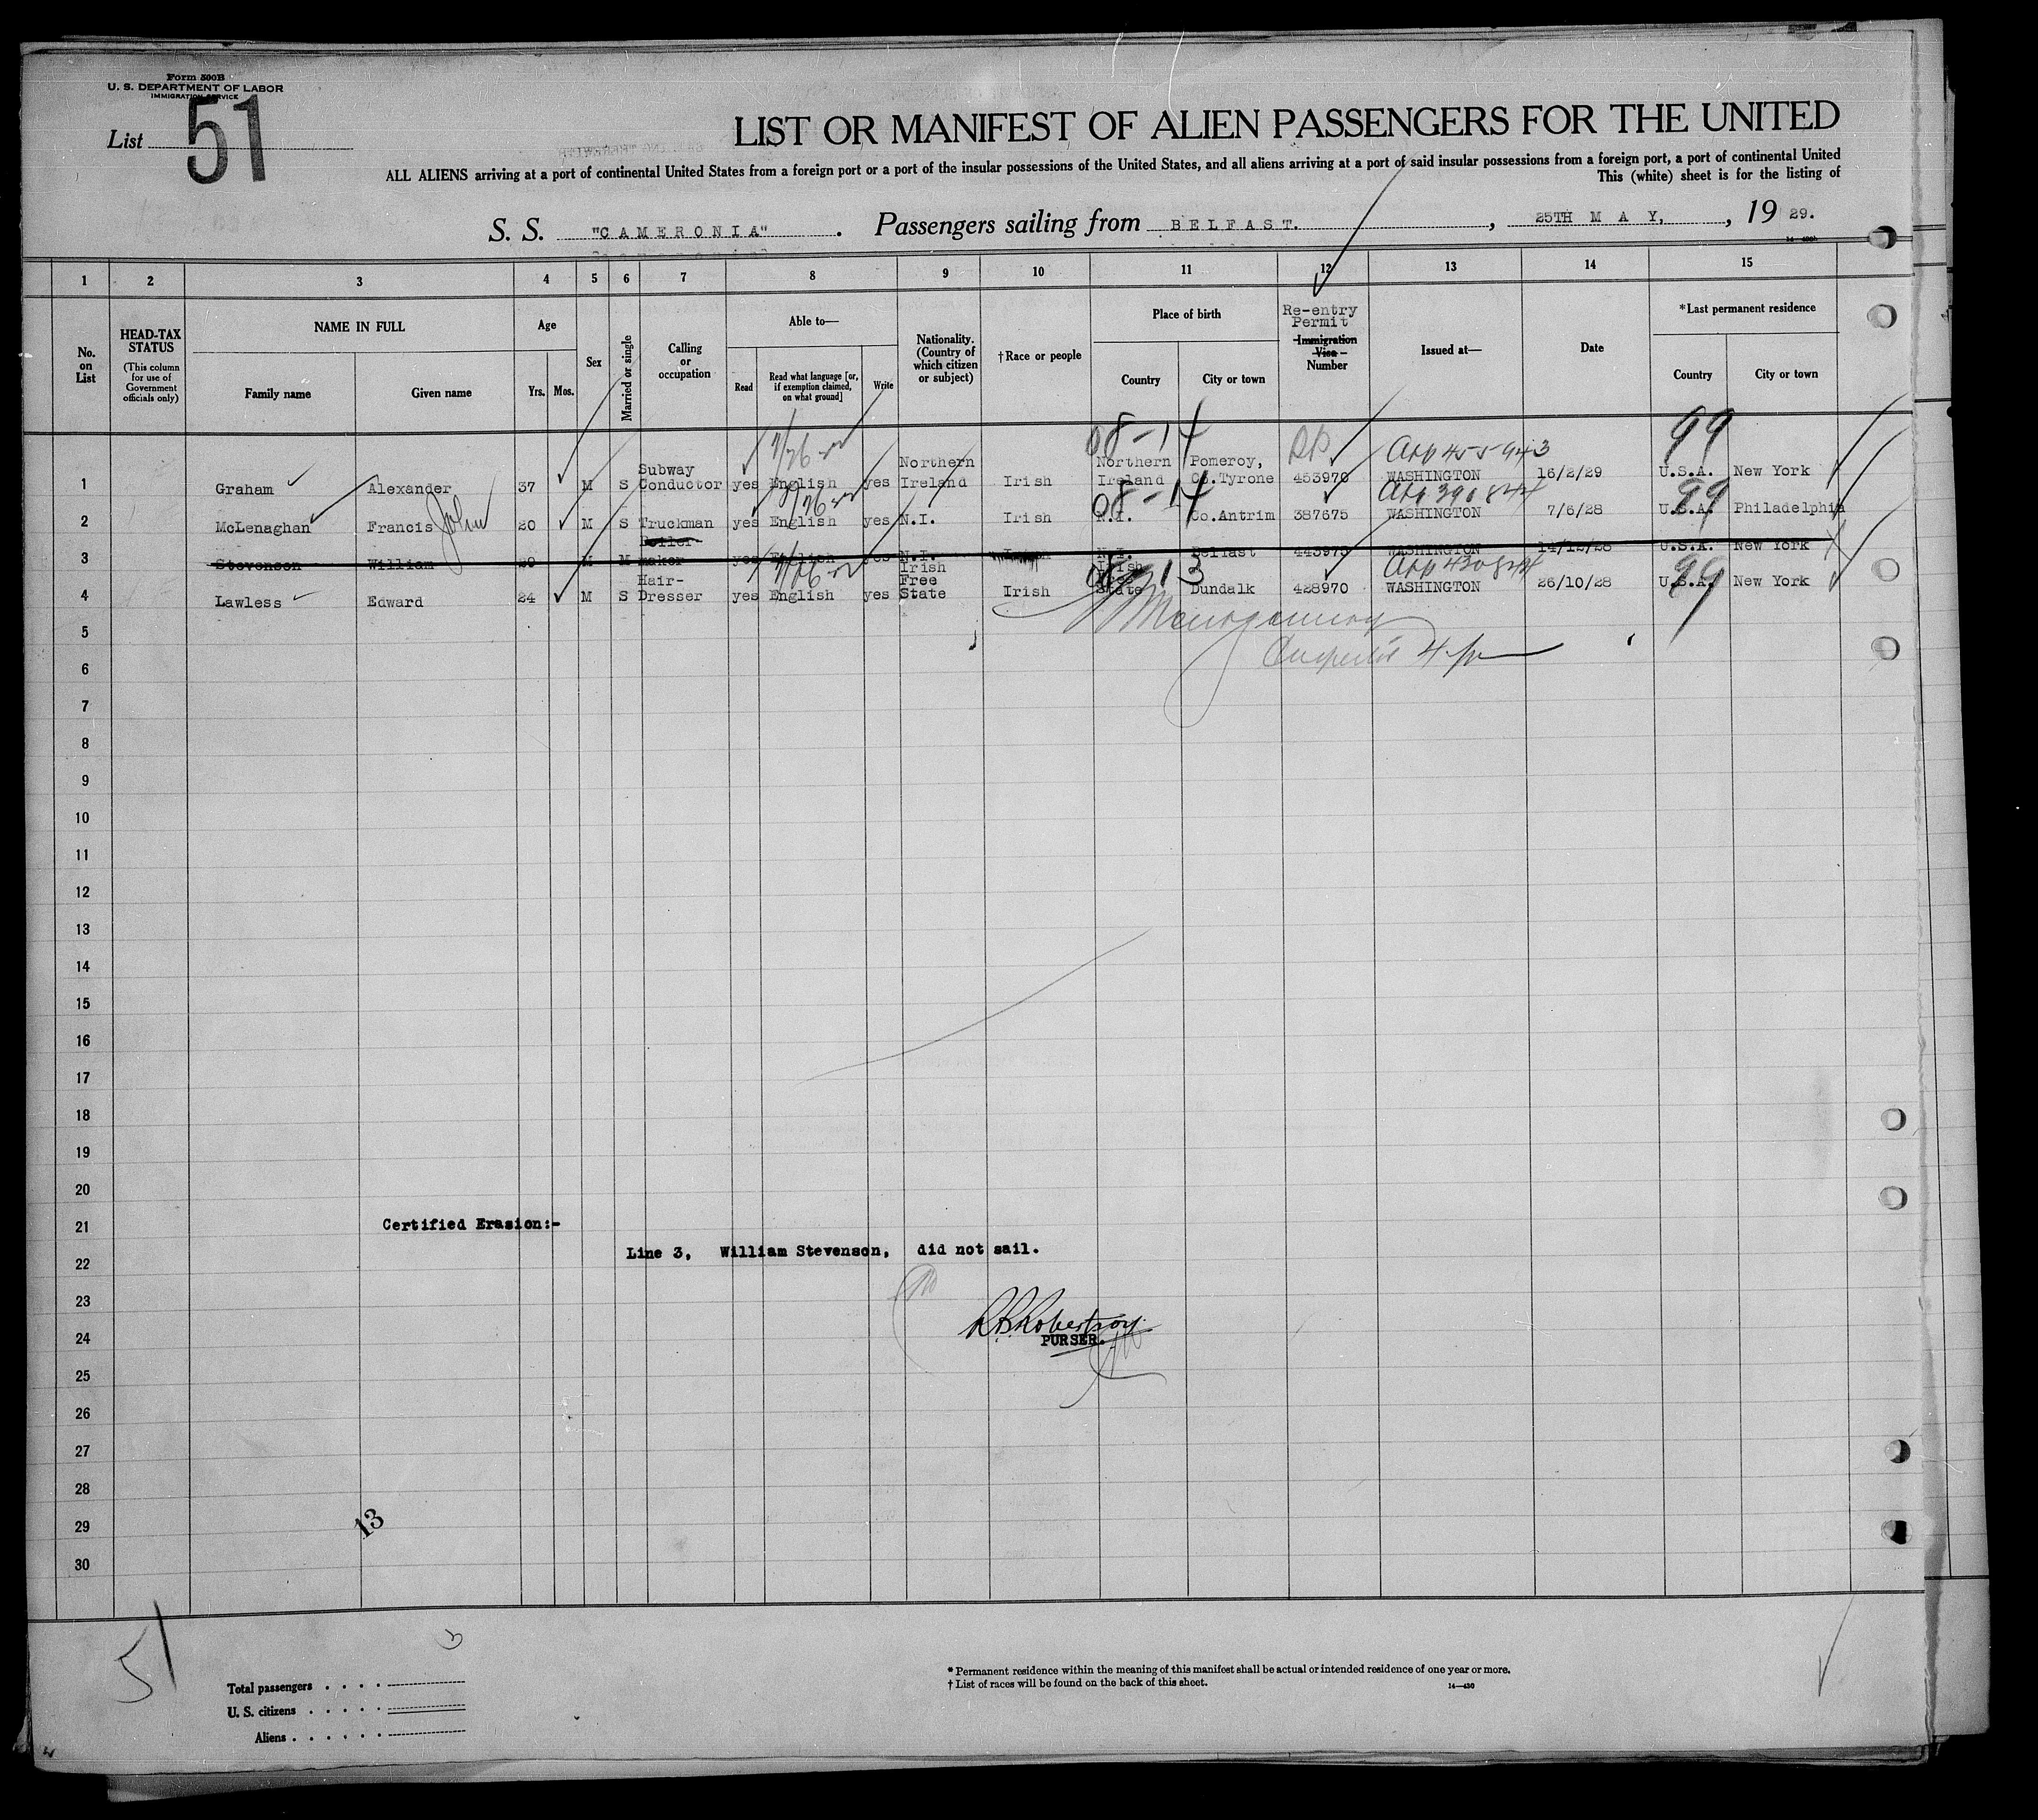 Form 500B
U. S. DEPARTMENT OF LABOR
IMMIGRATION SERVICE
List 51
LIST OR MANIFEST OF ALIEN PASSENGERS FOR THE UNITED
ALL ALIENS arriving at a port of continental United States from a foreign port or a port of the insular possessions of the United States, and all aliens arriving at a port of said insular possessions from a foreign port, a port of continental United
This (white) sheet is for the listing of
S. S. "CAMERONIA". Passengers sailing from BELFAST., 25TH MAY, , 19 29.
1 2 3 4 5 6 7 8 9 10 11 12 13 14 15
No. on List
HEAD-TAX STATUS
(This column for use of Government officials only)
NAME IN FULL
Family name
Given name
Age
Yrs. Mos.
Sex
Married or single
Calling or occupation
Able to—
Read
Read what language [or, if exemption claimed, on what ground]
Write
Nationality. (Country of which citizen or subject)
†Race or people
Place of birth
Country
City or town
Re-entry Permit
Immigration Visa
Number
Issued at—
Date
*Last permanent residence
Country
City or town
08-14 99
1 Graham Alexander 37 M S Subway Conductor yes English yes Northern Ireland Irish Northern Ireland Pomeroy, Co.Tyrone 453970 WASHINGTON 16/2/29 U.S.A. New York
08-14 99
2 McLenaghan Francis John 20 M S Truckman yes English yes N.I. Irish N.I. Co.Antrim 387675 WASHINGTON 7/6/28 U.S.A. Philadelphia
3 Stevenson William 29 M M Boiler maker yes English yes N.I. Irish N.I. Belfast 443973 WASHINGTON 14/12/28 U.S.A. New York
99
4 Lawless Edward 24 M S Hair-Dresser yes English yes Irish Free State Irish Irish Free State Dundalk 428970 WASHINGTON 26/10/28 U.S.A. New York
5
6
7
8
9
10
11
12
13
14
15
16
17
18
19
20
21 Certified Erasion:-
22 Line 3, William Stevenson, did not sail.
23
24 PURSER.
25
26
27
28
29 13
30
51
3
Total passengers
U. S. citizens
Aliens
* Permanent residence within the meaning of this manifest shall be actual or intended residence of one year or more.
† List of races will be found on the back of this sheet.
14—430